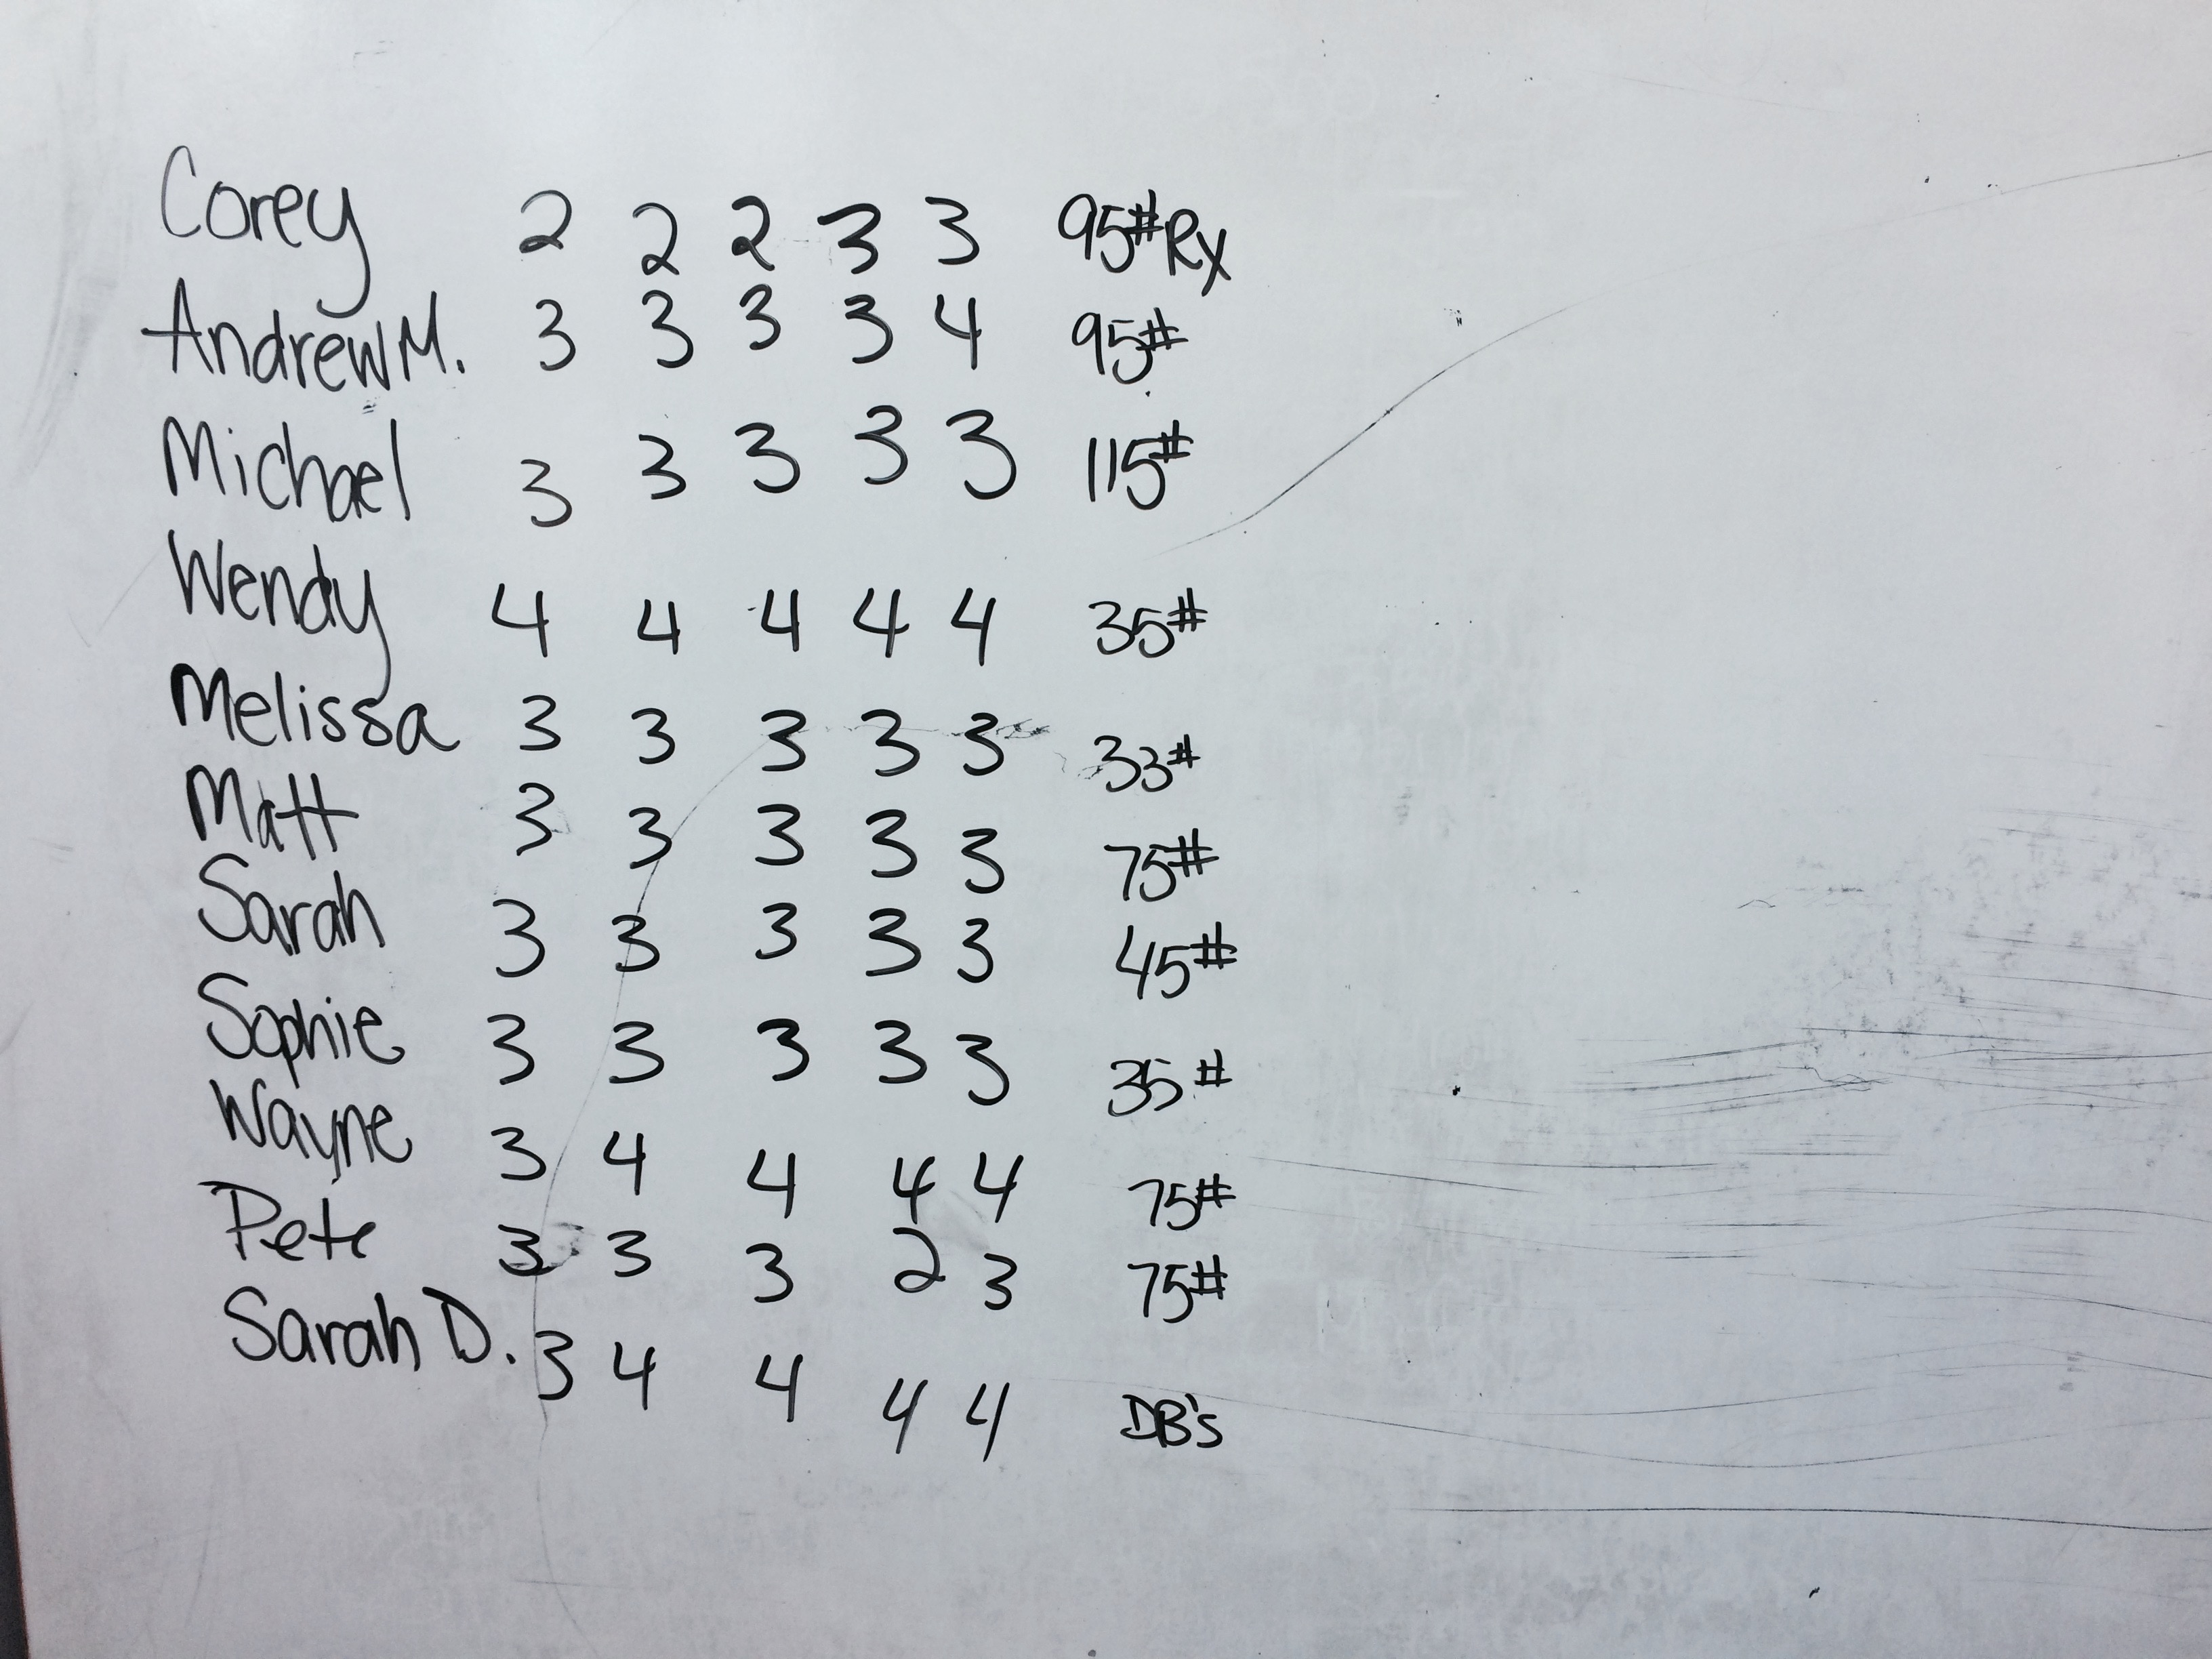 Corey 2 2 2 3 3 95# Rx
Andrew M. 3 3 3 3 4 95#
Michael 3 3 3 3 3 115#
Wendy 4 4 4 4 4 35#
Melissa 3 3 3 3 3 33#
Matt 3 3 3 3 3 75#
Sarah 3 3 3 3 3 45#
Sophie 3 3 3 3 3 35#
Wayne 3 4 4 4 4 75#
Pete 3 3 3 2 3 75#
Sarah D. 3 4 4 4 4 DB's